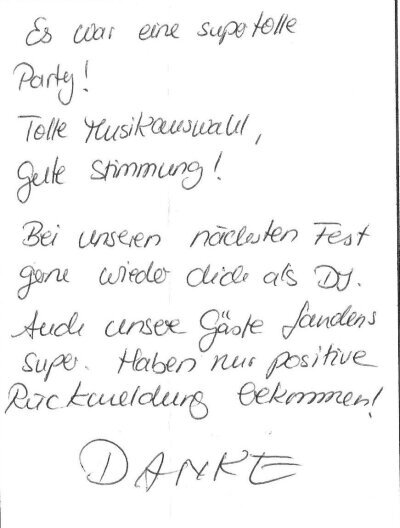 Es war eine supertolle
Party!
Tolle Musikauswahl,
gute Stimmung!
Bei unseren nächsten Fest
gerne wieder dich als DJ.
Auch unsere Gäste fandens
super. Haben nur positive
Rückmeldung bekommen!
DANKE